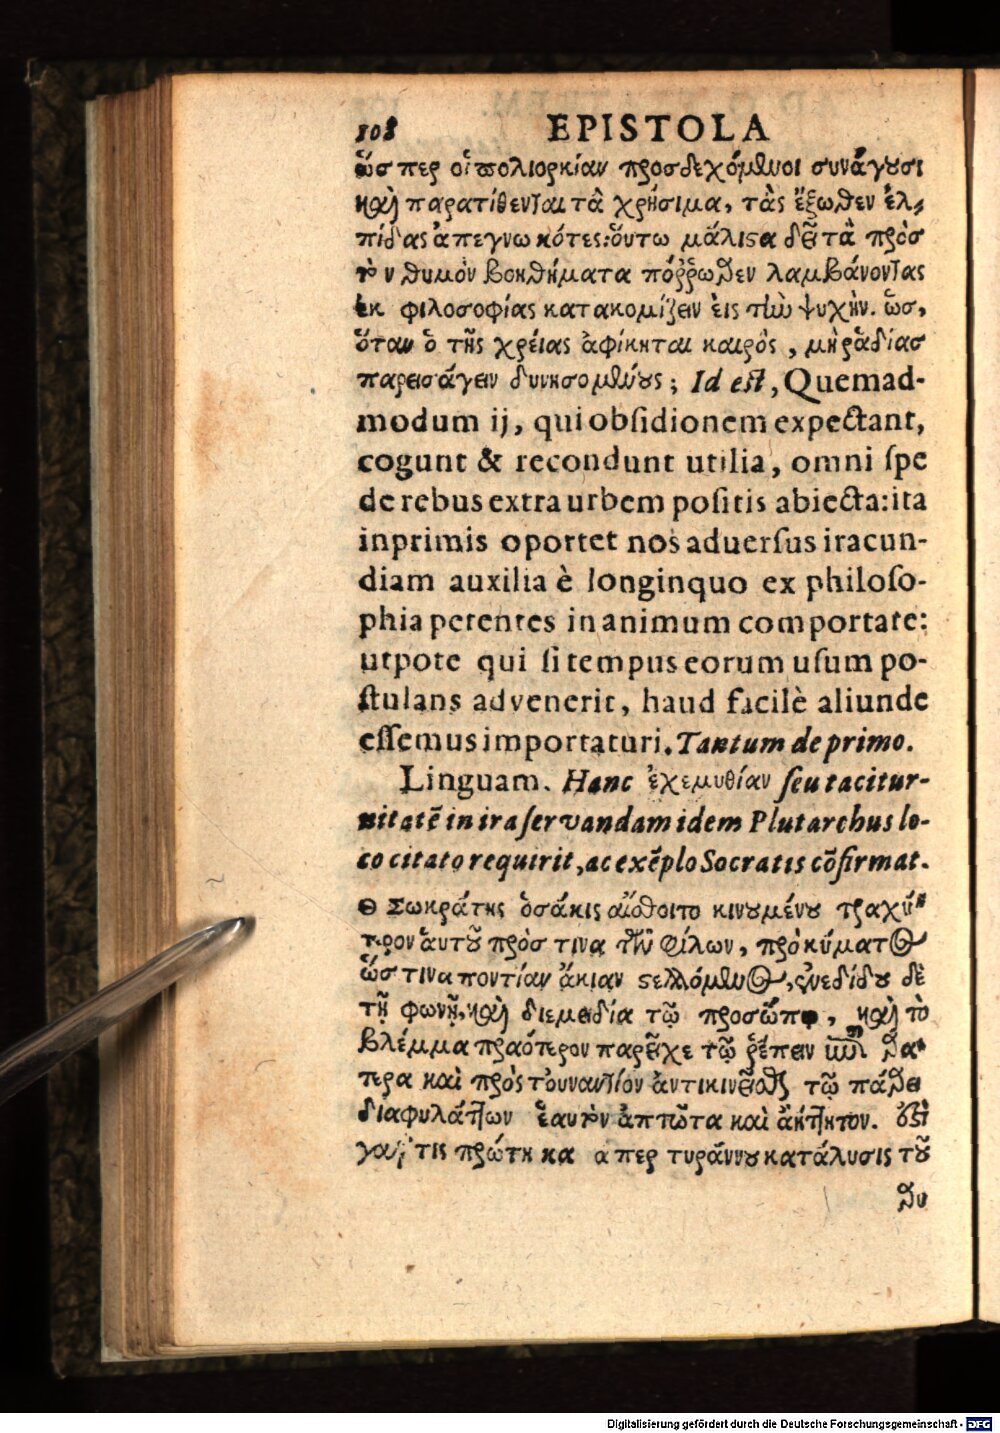 108 EPISTOLA
ὥσπερ οἱ πολιορκίαν προσδεχόμενοι συνάγουσι
καὶ παρατίθενται τὰ χρήσιμα, τὰς ἔξωθεν ἐλ-
πίδας ἀπεγνωκότες: οὕτω μάλιστα δεῖ τὰ πρὸς
τὸν θυμὸν βοηθήματα πόῤῥωθεν λαμβάνοντας
ἐκ φιλοσοφίας κατακομίζειν εἰς τὴν ψυχήν. ὡς,
ὅταν ὁ τῆς χρείας ἀφίκηται καιρὸς, μὴ ῥᾳδίως
παρεισάγειν δυνησομένους; Id est, Quemad-
modum ij, qui obsidionem expectant,
cogunt & recondunt utilia, omni spe
de rebus extra urbem positis abiecta: ita
inprimis oportet nos aduersus iracun-
diam auxilia è longinquo ex philoso-
phia petentes in animum comportare:
utpote qui si tempus eorum usum po-
stulans advenerit, haud facilè aliunde
essemus importaturi. Tantum de primo.
Linguam. Hanc ἐχεμυθίαν seu tacitur-
nitatē in ira servandam idem Plutarchus lo-
co citato requirit, ac exēplo Socratis cōfirmat.
Ὁ Σωκράτης ὁσάκις αἴσθοιτο κινουμένου τραχύ-
τερον αὑτοῦ πρός τινα τῶν φίλων, πρὸ κύματος
ὥς τινα ποντίαν ἄκραν στελλόμενος, ἐνεδίδου δὲ
τῇ φωνῇ, καὶ διεμειδία τῷ προσώπῳ, καὶ τὸ
βλέμμα πραότερον παρεῖχε τῷ ῥέπειν ἐπὶ θά-
τερα καὶ πρὸς τοὐναντίον ἀντικινεῖσθαι τῷ πάθει
διαφυλάττων ἑαυτὸν ἄπτωτα καὶ ἀήττητον. ἔστι
γάρ τις πρώτη κα ἅπερ τυράννου κατάλυσις τοῦ
θυ
Digitalisierung gefördert durch die Deutsche Forschungsgemeinschaft - DFG